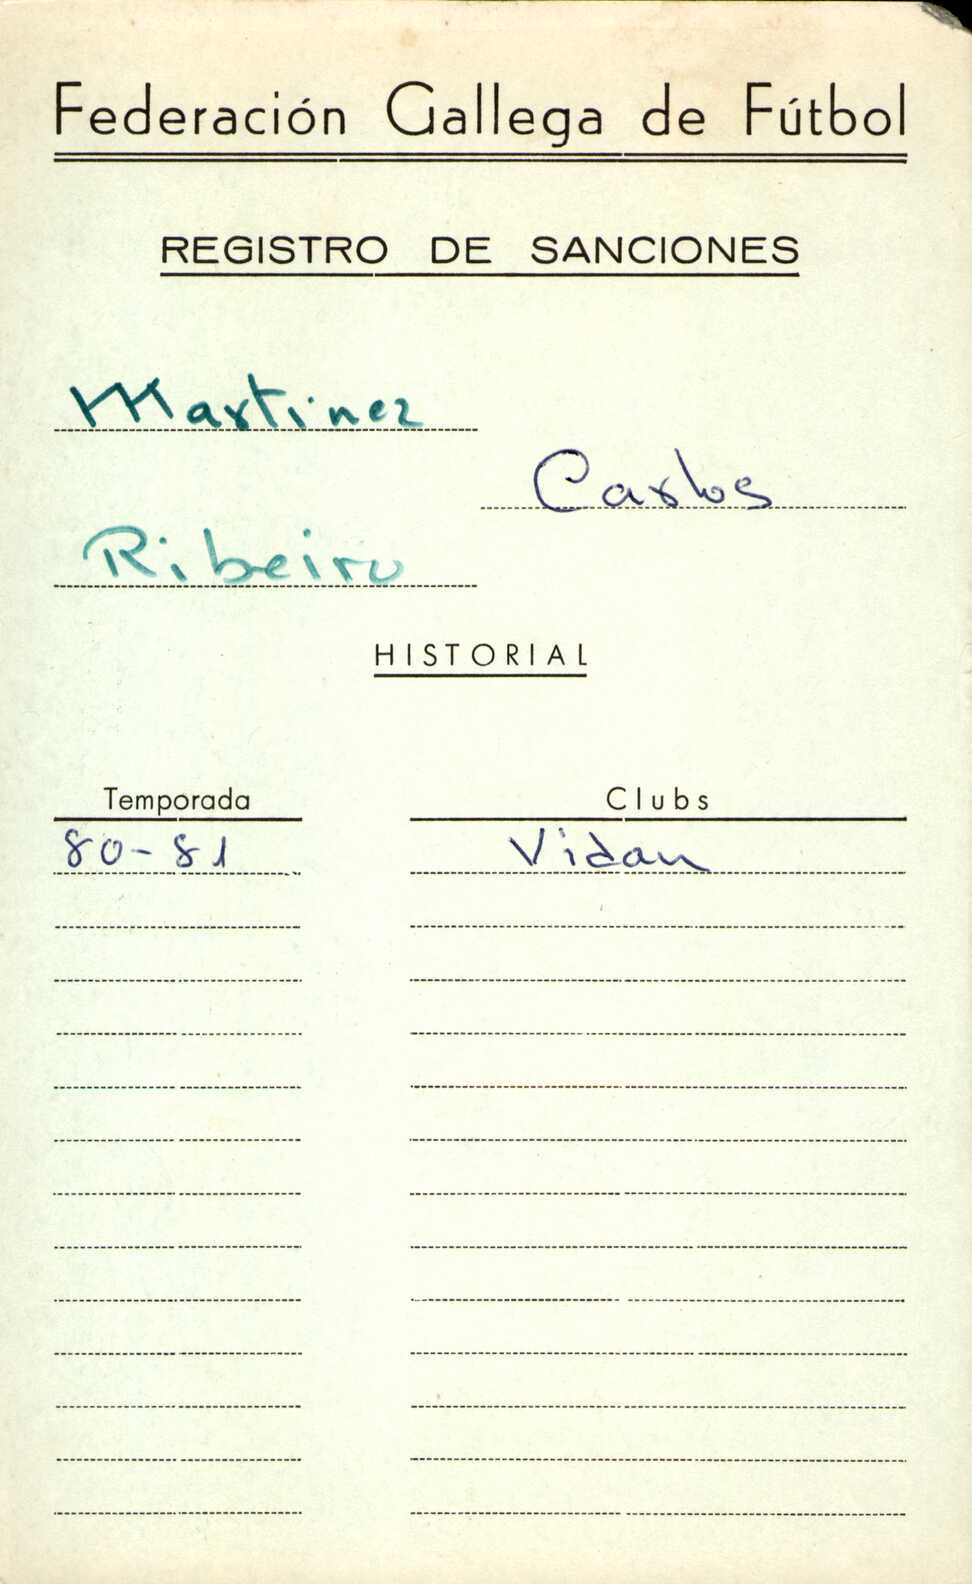 Federación Gallega de Fútbol
REGISTRO DE SANCIONES
Martinez
Carlos
Ribeiro
HISTORIAL
Temporada Clubs
80-81 Vidan